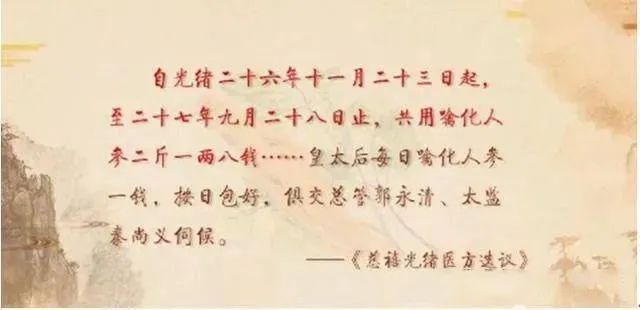 自光绪二十六年十一月二十三日起，
至二十七年九月二十八日止，共用噙化人
参二斤一两八钱……皇太后每日噙化人参
一钱，按日包好，俱交总管郭永清、太监
秦尚义伺候。
——《慈禧光绪医方选议》